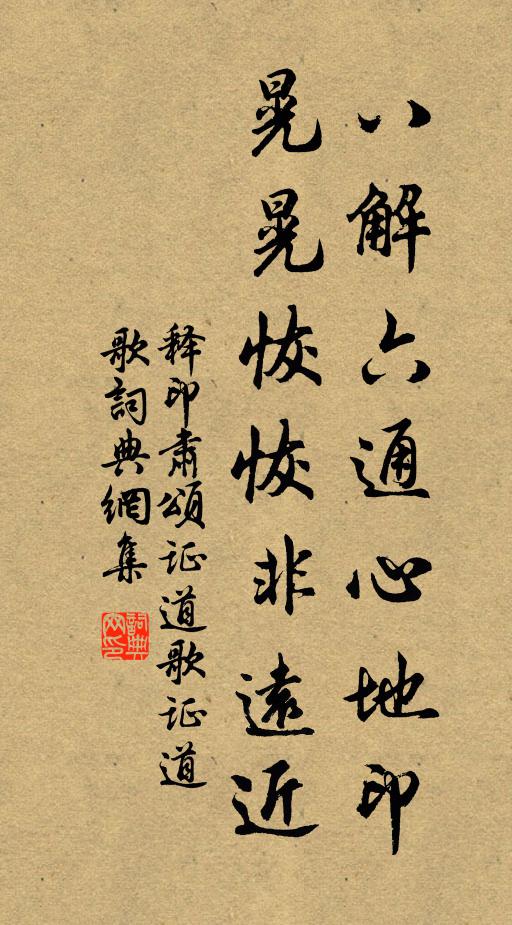 八解六通心地印
晃晃恢恢非遠近
释印肅頌证道歌证道
歌詞典網集
詞典網印